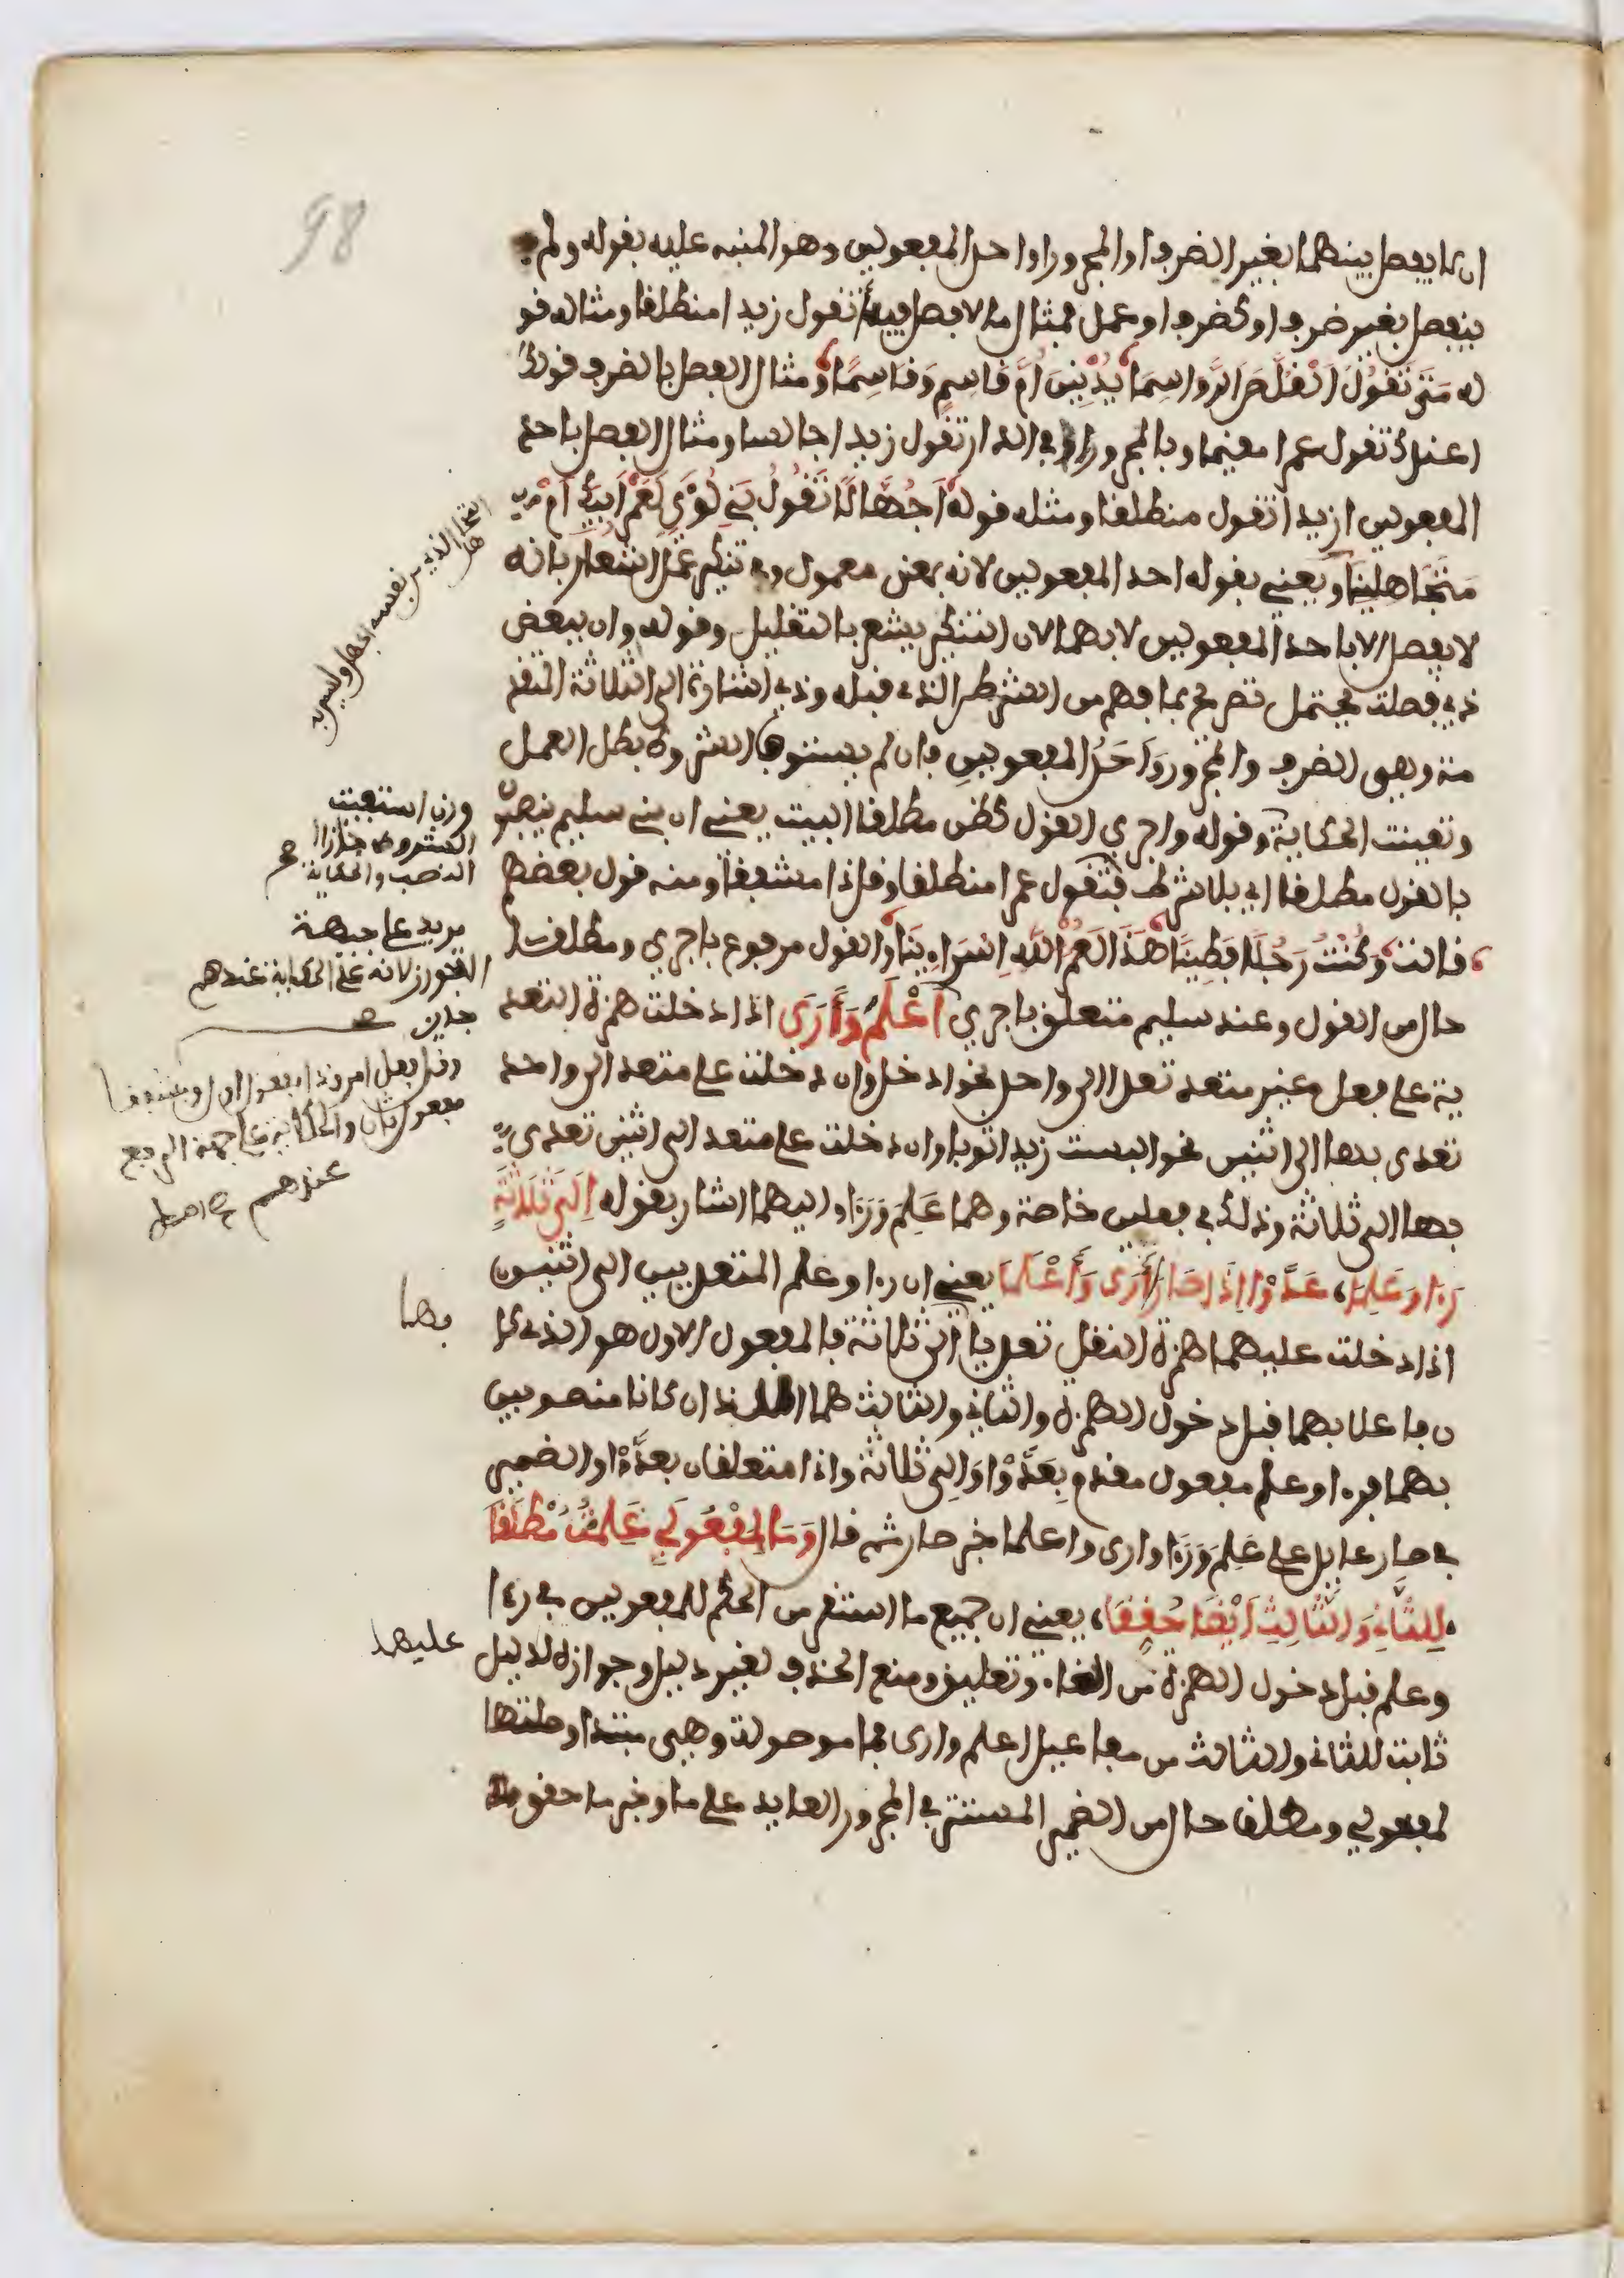 98
ان لا يفصل بينهما بغير الضرف او المجرور او احد المفعولين وهو المنبه عليه بقوله ولم
ينفصل بغير ضرف او كضرف او عمل فمثال ما لا فصل فيه أتقول زيدا منطلقا ومثاله قو
له مَتَى تَقُولُ الْقُلَّصَ الرَّواسِمَا يُدْنِينَ أُمَّ قَاسِمٍ وَقَاسِمَا ومثال الفصل بالضرف قولك
اعندك تقول عمرا مقيما وبالمجرور افي الدار تقول زيدا جالسا ومثال الفصل باحد
المفعولين ازيدا تقول منطلقا ومثله قوله أَجُهَّالًا تَقُولُ بَنِي لُؤَيٍ لَعَمْرُ أَبِيكَ أَمْ
مُتَجَاهِلِينَا ويعني بقوله احد المفعولين لانه بمعنى معمول وفي تنكير عمل اشعار بانه
لا يفصل الا باحد المفعولين لا بهما لان التنكير يشعر بالتقليل وقوله وان ببعض
ذي فصلت يحتمل تصريح بما فهم من الشطر الذي قبله وذي اشارة الى الثلاثة المتقد
مة وهي الضرف والمجرور وَاَحَدُ المفعولين فان لم يستوف الشروط بطل العمل
وتعينت الحكاية وقوله واجري القول كظن مطلقا البيت يعني ان بني سليم ينصبون
بالقول مطلقا اي بلا شرط فتقول عمرا منطلقا وقل ذا مشفقا ومنه قول بعضهم
قالت وَكُنْتُ رَجُلًا فَطِينَا هَذَا لَعَمْرُ اللَّهِ إِسْرَاءِينَا والقول مرفوع باجري ومطلقا
حال من القول وعند سليم متعلق باجري أَعْلَمَ وَأَرَى اذا دخلت همزة التعد
ية على فعل غير متعد تعدا الى واحد نحو ادخل وان دخلت على متعد الى واحد
تعدى بها الى اثنين نحو البست زيدا ثوبا وان دخلت على متعد الى اثنين تعدى
بها الى ثلاثة وذلك في فعلين خاصة وهما عَلِمَ وَرَءَا واليهما اشار بقوله إِلَى ثَلَاثَةٍ
رَءَا وَعَلِمَا، عَدَّوْا إِذَا صَارَا أَرَى وَأَعْلَمَا يعني ان رءا وعلم المتعديين الى اثنين
اذا دخلت عليهما همزة النقل تعديا الى ثلاثة فالمفعول الاول هو الذي كا
ن فاعلا بهما قبل دخول الهمزة والثاني والثالث هما اللذان كانا منصوبين
بهما فرءا وعلم مفعول مقدم بِعَدَّوْا وَاِلى ثلاثة واذا متعلقان بعدَّوْا والضمير
في صار عايد على عَلِمَ وَرَءَا وارى واعلما خبر صار ثم قال وَمَا لِمَفْعُولَيْ عَلِمْتُ مُطْلَقَا
لِلثَّانِ وَالثَّالِثِ أَيْضًا حُقِّقَا، يعني ان جميع ما استقر من الحكم للمفعولين في رءا
وعلم قبل دخول الهمزة من الغاء وتعليق ومنع الحذف لغير دليل وجوازه لدليل
ثابت للثاني والثالث من مفاعيل اعلم وارى فما موصولة وهي مبتدا وصلتها
لمفعولي ومطلقا حال من الضمير المستتر في المجرور العايد على ما وخبر ما حقق
وان استفيت
الشروط جاز
النصب والحكاية
يريد على جهة
التجوز لانه على الحكاية عندهم
وقل فعل امر وذا مفعول اول ومشفقا
مفعول ثان والحكاية على جهة الرفع
عندهم
بها
عليهما